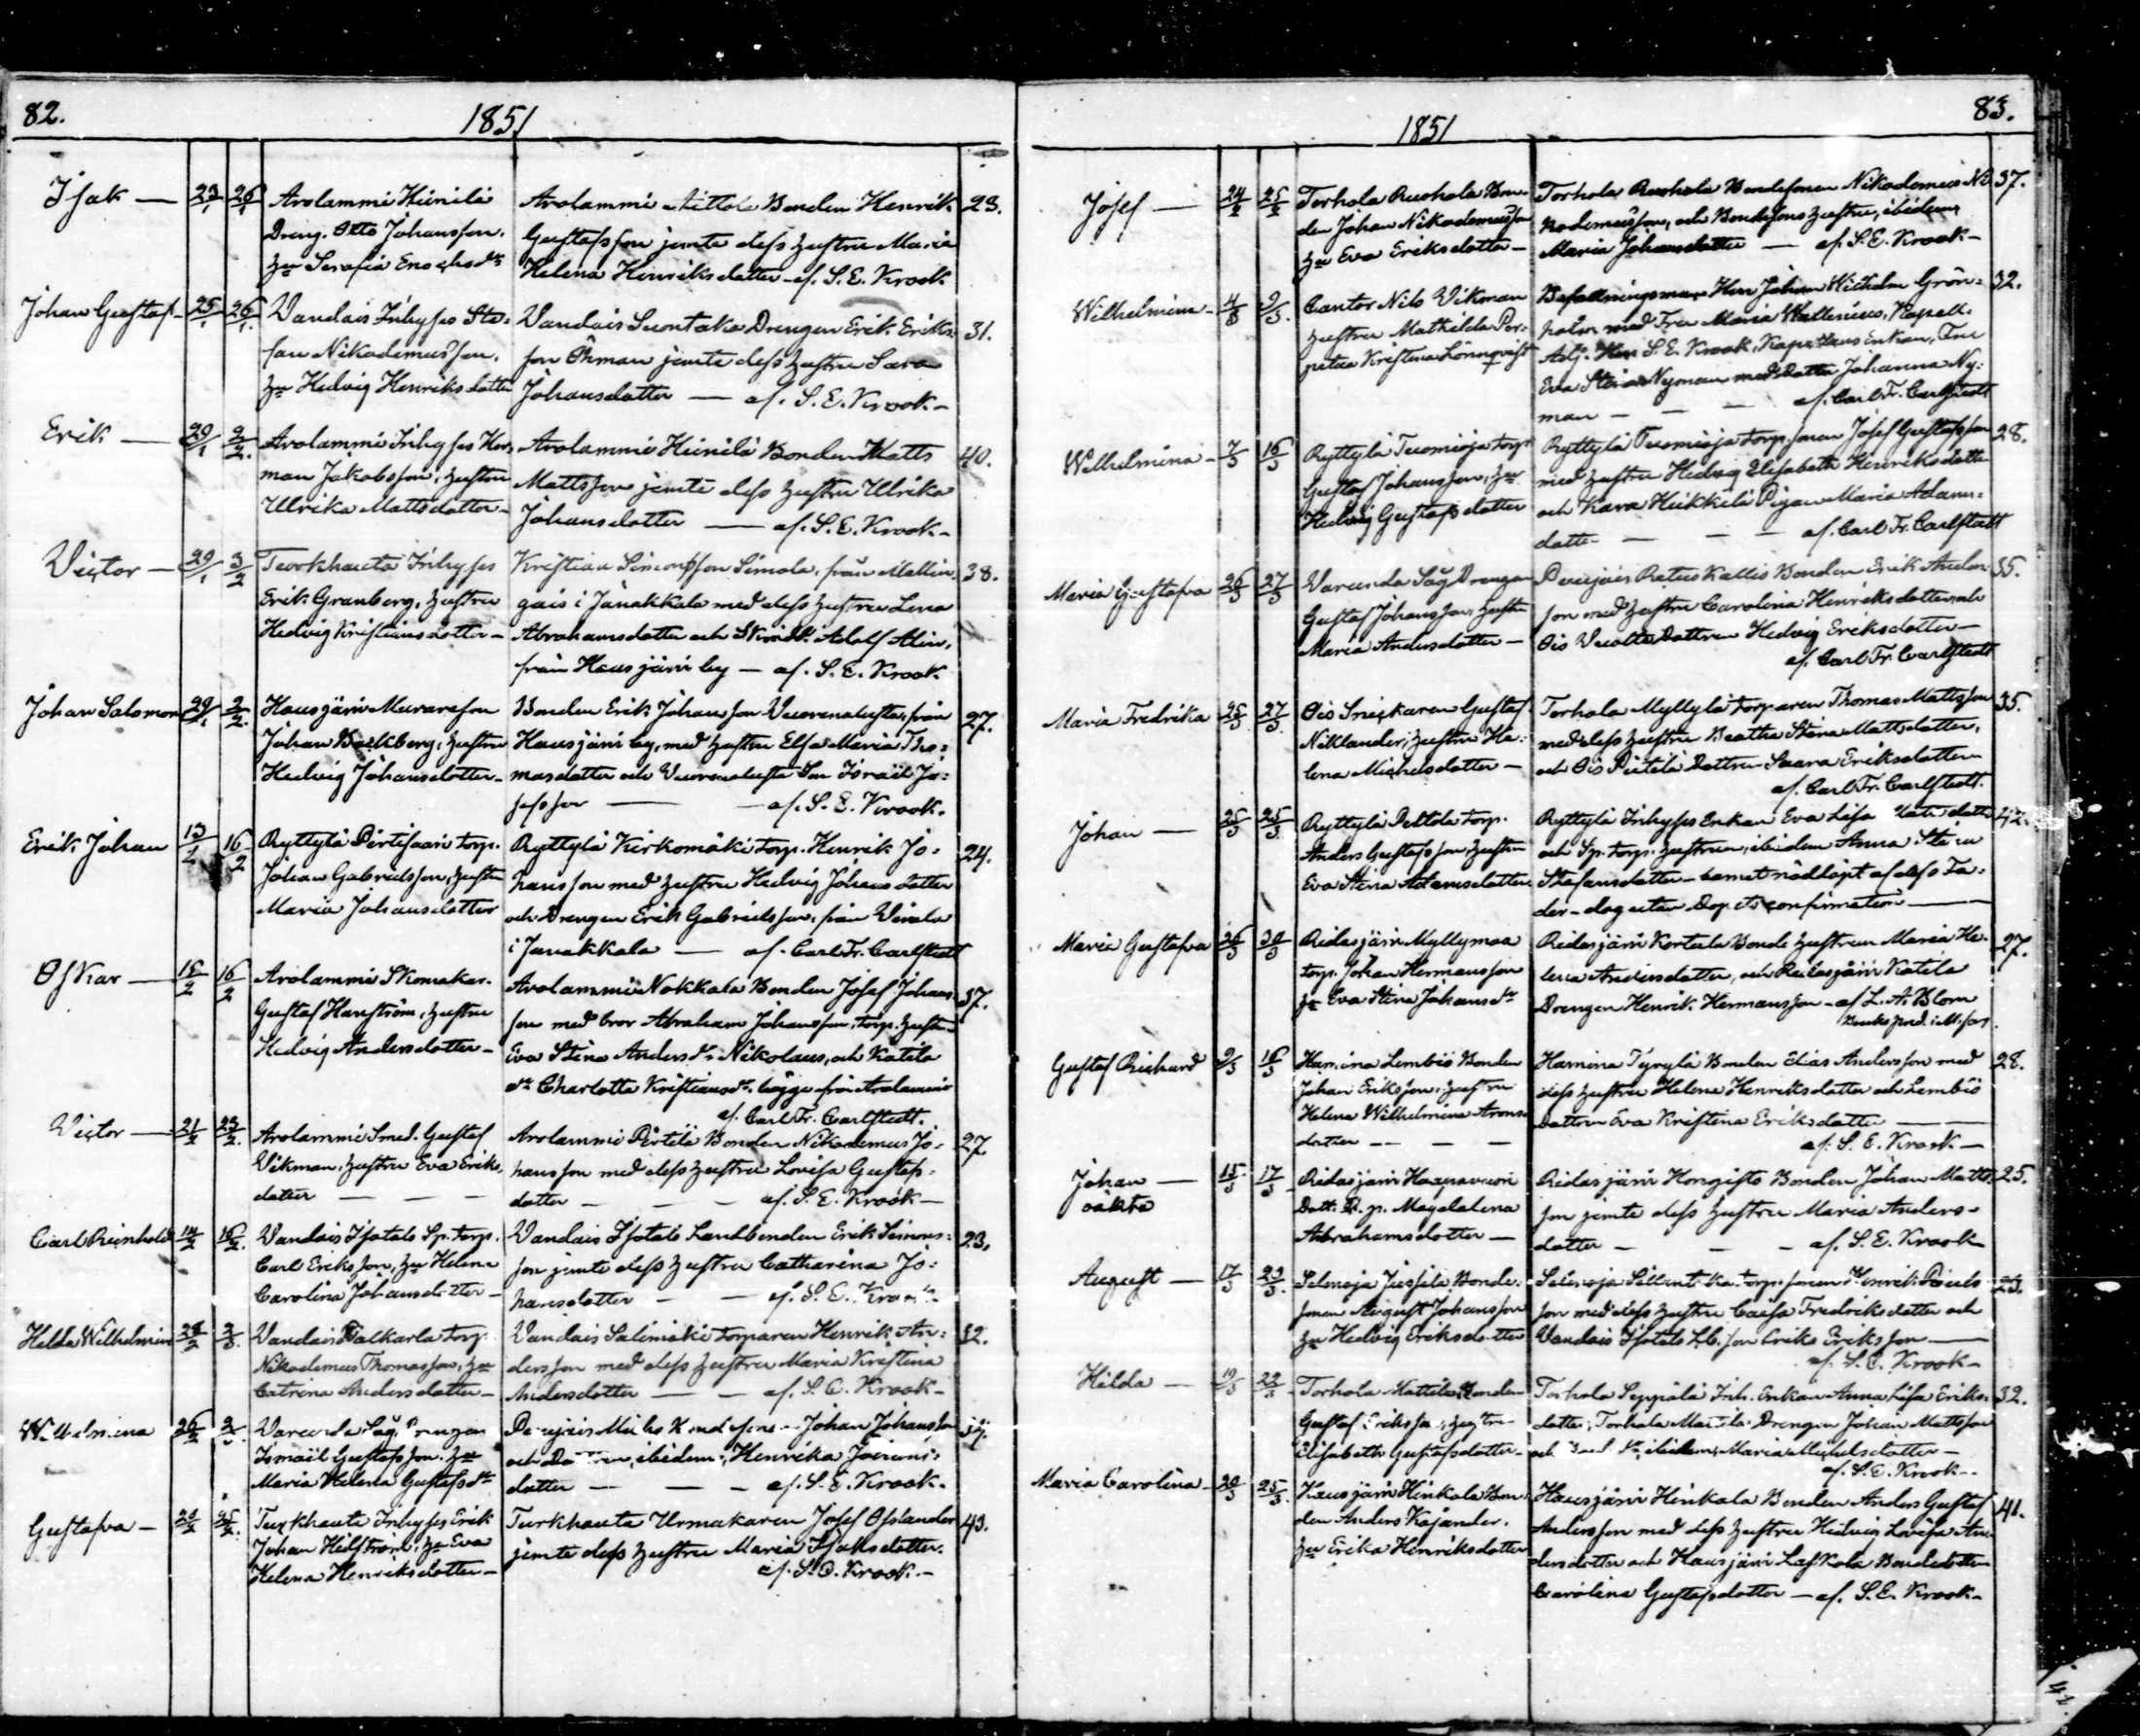 82.
1851
Isak — 23/1 26/1 Arolammi Heinilä Arolammi Aittola Bonden Henrik 23.
Dreng. Otto Johansson. Gustafsson jemte dess hustru Maria
hu Serafia Enochsdr Helena Henriksdotter - af. S. E. Krook.
Johan Gustaf - 25/1 26/1. Vandais Inhyses Ste- Vandais Suontaka Drengen Erik Eriks- 31.
fan Nikodemusson. son Öhman jemte dess hustru Sara
hu Hedvig Henriksdotter Johansdotter — af. S. E. Krook -
Erik — 29/1 2/2. Arolammi Inhyses Her- Arolammi Heinilä Bonden Matts 40.
man Jakobsson, hustru Mattsson jemte dess hustru Ulrika
Ulrika Mattsdotter - Johansdotter — af. S. E. Krook -
Victor — 29/1 3/2 Teorkhauta Inhyses Kristian Simonsson Simola, från Mallin- 38.
Erik Granberg, hustru gais i Janakkala med dess hustru Lena
Hedvig Kristiansdotter - Abrahamsdotter och Skrädd. Adolf Alin,
från Hausjärvi by — af. S. E. Krook.
Johan Salomon 29/1 2/2. Hausjärvi Murareson Bonden Erik Johansson Vuorenalusta, från 27.
Johan Backberg, hustru Hausjärvi by, med hustru Elsa Maria Tho-
Hedvig Johansdotter - masdotter och Vuorenalusta Son Israël Jo-
sefsson — af. S. E. Krook.
Erik Johan 13/2 16/2 Ryttylä Pertisaari torp. Ryttylä Kirkomäki torp. Henrik Jo- 24.
Johan Gabrielsson, hustru hansson med hustru Hedvig Johansdotter
Maria Johansdotter och Drengen Erik Gabrielsson, från Virala
i Janakkala — af. Carl Fr. Carlstedt
Oskar — 15/2 16/2 Arolammi Skomakar. Arolammi Nokkala Bonden Josef Johans- 37.
Gustaf Hanström, hustru son med bror Abraham Johansson, torp. hustr.
Hedvig Andersdotter - Eva Stina Andersdr Nikolaus, och Katila
dr Charlotta Kristiansdr. bägge från Arolammi
af. Carl Fr. Carlstedt.
Victor — 21/2 23/2. Arolammi Smed. Gustaf Arolammi Pertilä Bonden Nikodemus Jo- 27
Vikman, hustru Eva Eriks- hansson med dess hustru Lovisa Gustafs-
dotter — — — dotter — — af. S. E. Krook —
Carl Reinhold 14/2 16/2. Vandais Isotalo Sp. torp. Vandais Isotalo Landbonden Erik Simons- 23.
Carl Eriksson, hu Helena son jemte dess hustru Catharina Jo-
Carolina Johansdotter - hansdotter — — af. S. E. Krook -
Hilda Wilhelmina 28/2 2/3. Vandais Talkarla torp. Vandais Salimäki torparen Henrik An- 32.
Nikodemus Thomasson, hu dersson med dess hustru Maria Kristina
Catrina Andersdotter - Andersdotter — — af. S. E. Krook -
Wilhelmina 26/2 2/3. Varunda Såg Drengen Johan Johansson 34.
Ismaël Gustafsson. hu och Dottren, ibidem, Henrika
Maria Helena Gustafsdr dotter — — — af. S. E. Krook.
Gustafva - 23/2 25/2. Turkhauta Inhyses Erik Turkhauta Urmakaren Josef Osslander 43.
Johan Hellström, hu Eva jemte dess hustru Maria Isaksdotter.
Helena Henriksdotter - af. S. E. Krook. -
83.
1851
Josef — 24/2 25/2 Torhola Ruohola Bon- Torhola Ruohola Bondesonen Nikodemus Ni- 37.
den Johan Nikodemusson kodemusson, och Bondesons hustru, ibidem,
hu Eva Eriksdotter - Maria Johansdotter — af. S. E. Krook -
Wilhelmina - 4/3 9/3. Cantor Nils Vikman Befallningsman Herr Johan Wilhelm Grön- 32.
hustru Mathilda Per- holm med Fru Maria Wallenius, Kapell.
petua Kristina Lönnqvist Adj. Herr S. E. Krook, Kapellans Enkan, Fru
Eva Stina Nyman med Dotter Johanna Ny-
man — — — af. Carl Fr. Carlstedt
Wilhelmina - 7/3 16/3 Ryttylä Tuomioja torp. Ryttylä Tuomioja torp. sonen Josef Gustafsson 28.
Gustaf Johansson, hu med hustru Hedvig Elisabeth Henriksdotter
Hedvig Gustafsdotter och Kara Heikkilä Pigan Maria Adams-
dotter — — — af. Carl Fr. Carlstedt
Maria Gustafva 26/3 27/3 Varunda Såg Drengen Bonden Erik Anders- 35.
Gustaf Johansson, hustru son med hustru Carolina Henriksdotter och
Maria Andersdotter — Ois Uusitalo Dottren Hedvig Eriksdotter —
af. Carl Fr. Carlstedt
Maria Fredrika 25/3 27/3 Ois Snickaren Gustaf Torhola Myllylä torparen Thomas Mattsson 35.
Niklander, hustru He- med dess hustru Beatha Stina Mattsdotter,
lena Michelsdotter — och Ois Pietilä Dottren Saara Eriksdotter
af. Carl Fr. Carlstedt.
Johan — 25/3 25/3 Ryttylä Peltola torp. Ryttylä Inhyses Enkan Eva Lisa dotter 42.
Anders Gustafsson, hustru och Sp. torp. hustrun, ibidem Anna Stina
Eva Stina Adamsdotter Stefansdotter - barnet nöddöpt af dess Fa-
der - dog utan Dopets confirmation —
Maria Gustafva 26/3 30/3 Ridasjärvi Myllymaa Ridasjärvi Kortula Bonde hustrun Maria He- 27.
torp. Johan Hermansson lena Andersdotter, och Ridasjärvi Katila
hu Eva Stina Johansdr Drengen Henrik Hermansson - af L. A. Blom
Bruks pred. i
Gustaf Richard 9/3 16/3 Hamina Lembiö Bonden Hamina Tyrylä Bonden Elias Andersson med 28.
Johan Eriksson, hustru dess hustru Helena Henriksdotter och Lembiö
Helena Wilhelmina Arons- dottren Eva Kristina Eriksdotter —
dotter — — — af. S. E. Krook —
Johan — 15/3 17/3 Ridasjärvi Haapavuori Ridasjärvi Hongisto Bonden Johan Matts- 25.
oäkta Dott. Magdalena son jemte dess hustru Maria Anders-
Abrahamsdotter — dotter — — — af. S. E. Krook
August — 17/3 23/3. Selenoja Jussila Bonde- Selenoja torp. sonen Henrik Pauls- 23.
sonen August Johansson son med dess hustru Caisa Fredriksdotter och
hu Hedvig Eriksdotter Vandais Isotalo Lb. son Eriks Eriksson —
af. S. E. Krook -
Hilda — 19/3 22/3 Torhola Mattila Bonden Torhola Seppälä Inh. Enkan Anna Lisa Eriks- 32.
Gustaf Eriksson, hustru dotter, Torhola Mattila Drengen Johan Mattsson
Elisabeth Gustafsdotter - och ibidem, Maria Michelsdotter —
af. S. E. Krook -
Maria Carolina - 20/3 25/3. Hausjärvi Hinkala Bon- Hausjärvi Hinkala Bonden Anders Gustaf 41.
den Anders Kajander. Andersson med dess hustru Hedvig Lovisa An-
hu Erika Henriksdotter dersdotter och Hausjärvi Laskala Bondedotter
Carolina Gustafsdotter — af. S. E. Krook -